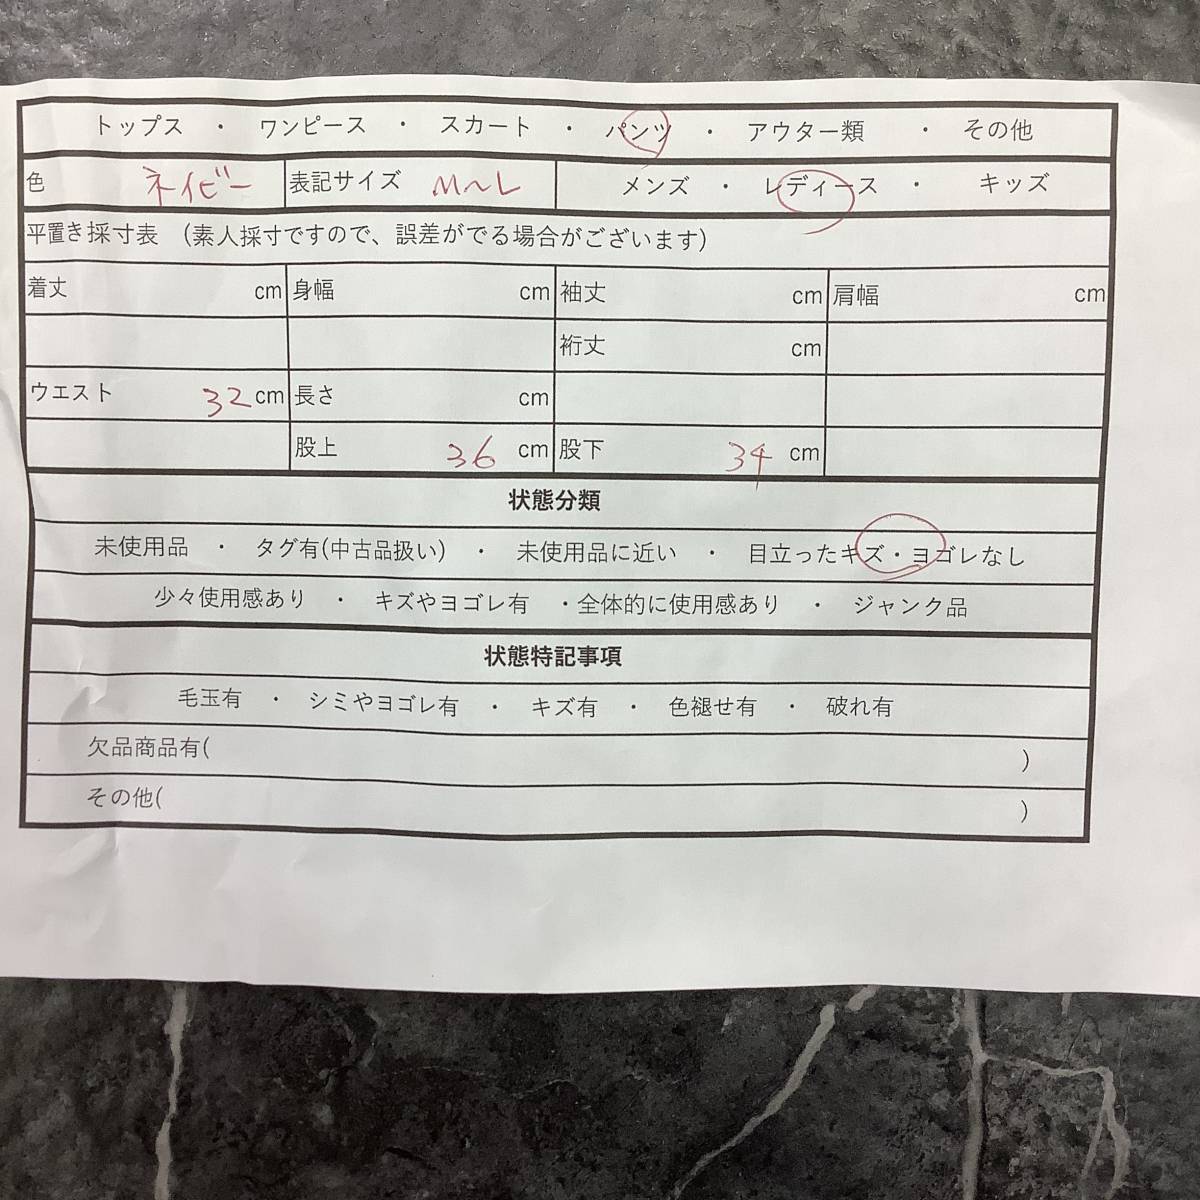 トップス ・ ワンピース ・ スカート ・ パンツ ・ アウター類 ・ その他
色 ネイビー 表記サイズ M～L メンズ ・ レディース ・ キッズ
平置き採寸表 （素人採寸ですので、誤差がでる場合がございます）
着丈 cm 身幅 cm 袖丈 cm 肩幅 cm
裄丈 cm
ウエスト 32cm 長さ cm
股上 36 cm 股下 34 cm
状態分類
未使用品 ・ タグ有(中古品扱い) ・ 未使用品に近い ・ 目立ったキズ・ヨゴレなし
少々使用感あり ・ キズやヨゴレ有 ・全体的に使用感あり ・ ジャンク品
状態特記事項
毛玉有 ・ シミやヨゴレ有 ・ キズ有 ・ 色褪せ有 ・ 破れ有
欠品商品有( )
その他( )